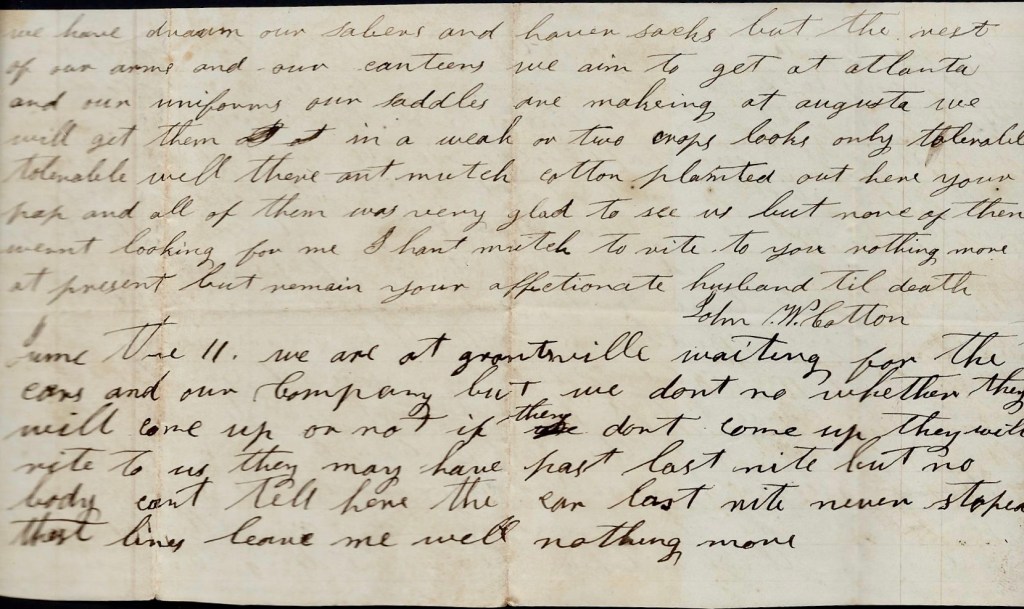 we have drawn our sabers and haver sacks but the rest
of our arms and our canteens we aim to get at atlanta
and our uniforms our saddles are makeing at augusta we
will get them in a weak or two crops looks only tolerable
tolerable well there ant mutch cotton planted out here your
pap and all of them was very glad to see us but none of them
wernt looking for me I hant mutch to rite to you nothing more
at present but remain your affectionate husband til death
John W. Cotton
June the 11. we are at grantsville waiting for the
cars and our Company but we dont no whether they
will come up or not if they dont come up they will
rite to us they may have past last nite but no
body cant tell here the car last nite never stoped
these lines leave me well nothing more